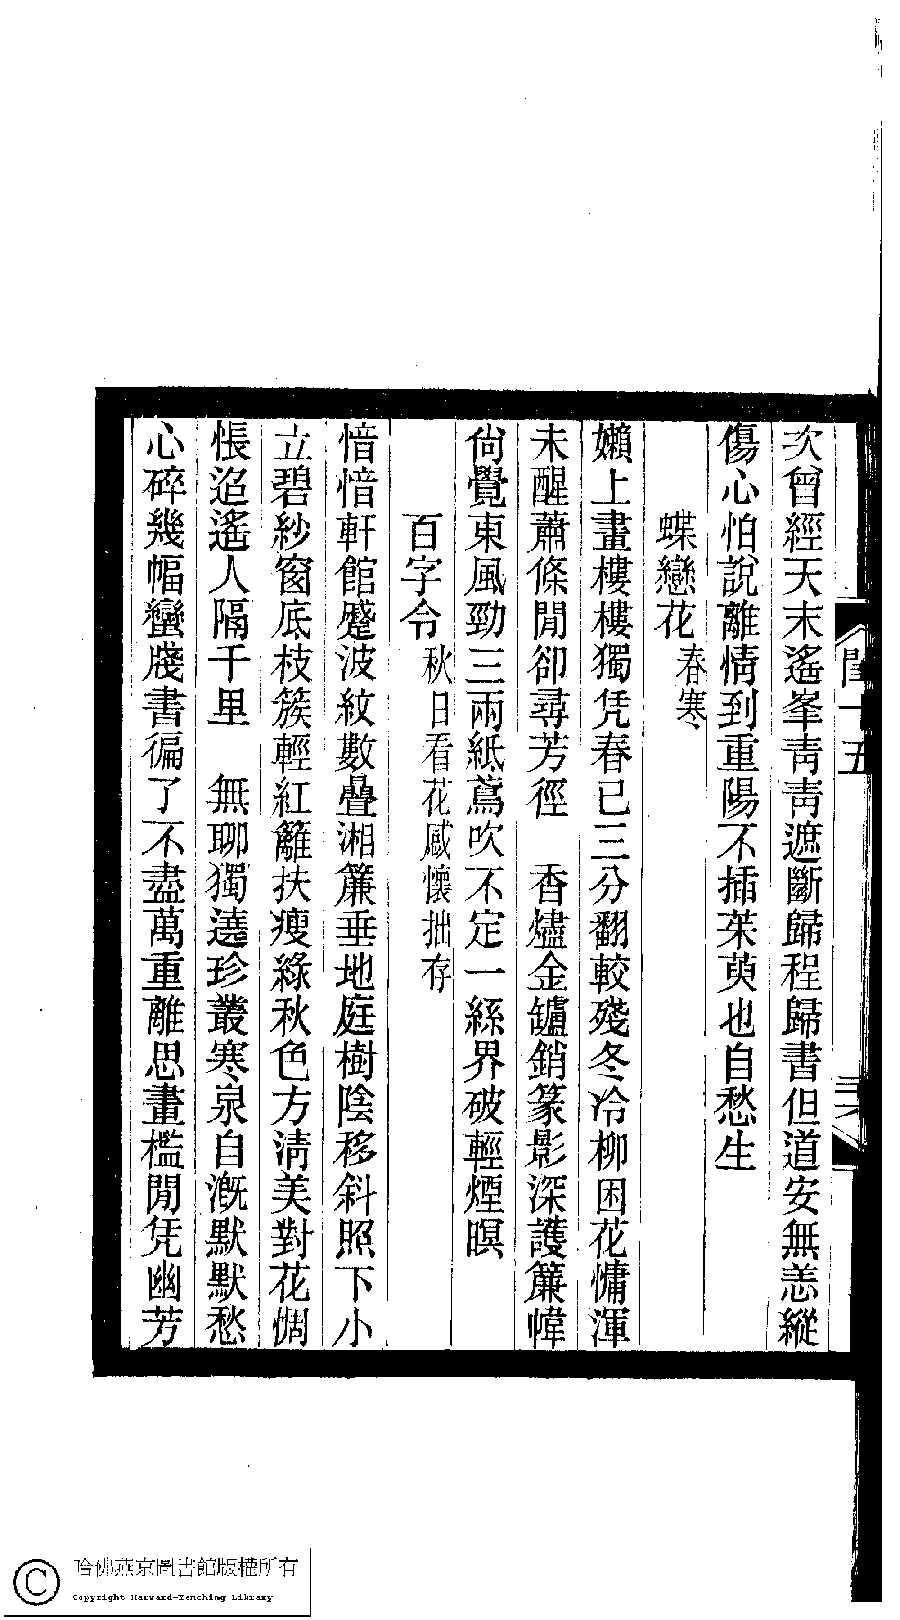 次曾經天末遙峯靑靑遮斷歸程歸書但道安無恙縱
傷心怕說離情到重陽不插茱萸也自愁生
蝶戀花春寒
嬾上畫樓樓獨凭春已三分翻較殘冬冷柳困花慵渾
未醒蕭條閒卻尋芳徑　香燼金鑪銷篆影深護簾幃
尙覺東風勁三兩紙鳶吹不定一絲界破輕煙暝
百字令秋日看花感懷拙存
愔愔軒館蹙波紋數疊湘簾垂地庭樹陰移斜照下小
立碧紗窗底枝簇輕紅籬扶瘦綠秋色方淸美對花惆
悵迢遙人隔千里　無聊獨遶珍叢寒泉自漑默默愁
心碎幾幅蠻牋書徧了不盡萬重離思畫檻閒凭幽芳
閨十五
哈佛燕京圖書館版權所有
Copyright Harvard-Yenching Library